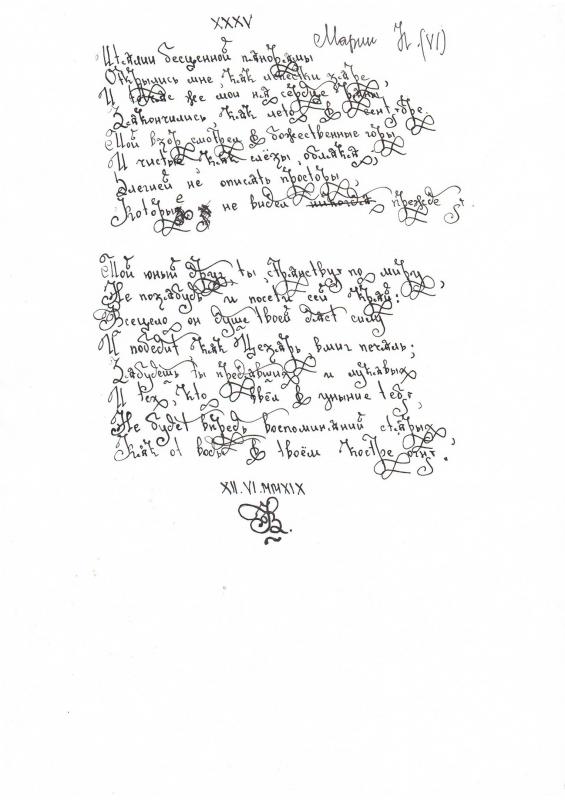 XXXV
Марии Н. (VI)
Италии бесценной панорамы
Открылись мне, как лепестки
И же мои на сердце раны
Закончились, как лето в сентябре.
Мой взор смотрел в божественные горы
И чистые, как слёзы, облака,
Элегией не описать просторы,
Которых я не видел прежде я.
Мой юный друг, ты странствуя по миру,
Не позабудь и посети сей край:
Всецело он душе твоей даст силу
И победит, как Цезарь, вмиг печаль;
Забудешь ты предавших и лукавых
И тех, кто ввёл в уныние тебя,
Не будет впредь воспоминаний старых,
Как от воды в твоём костре огня.
XII.VI.MMXIX